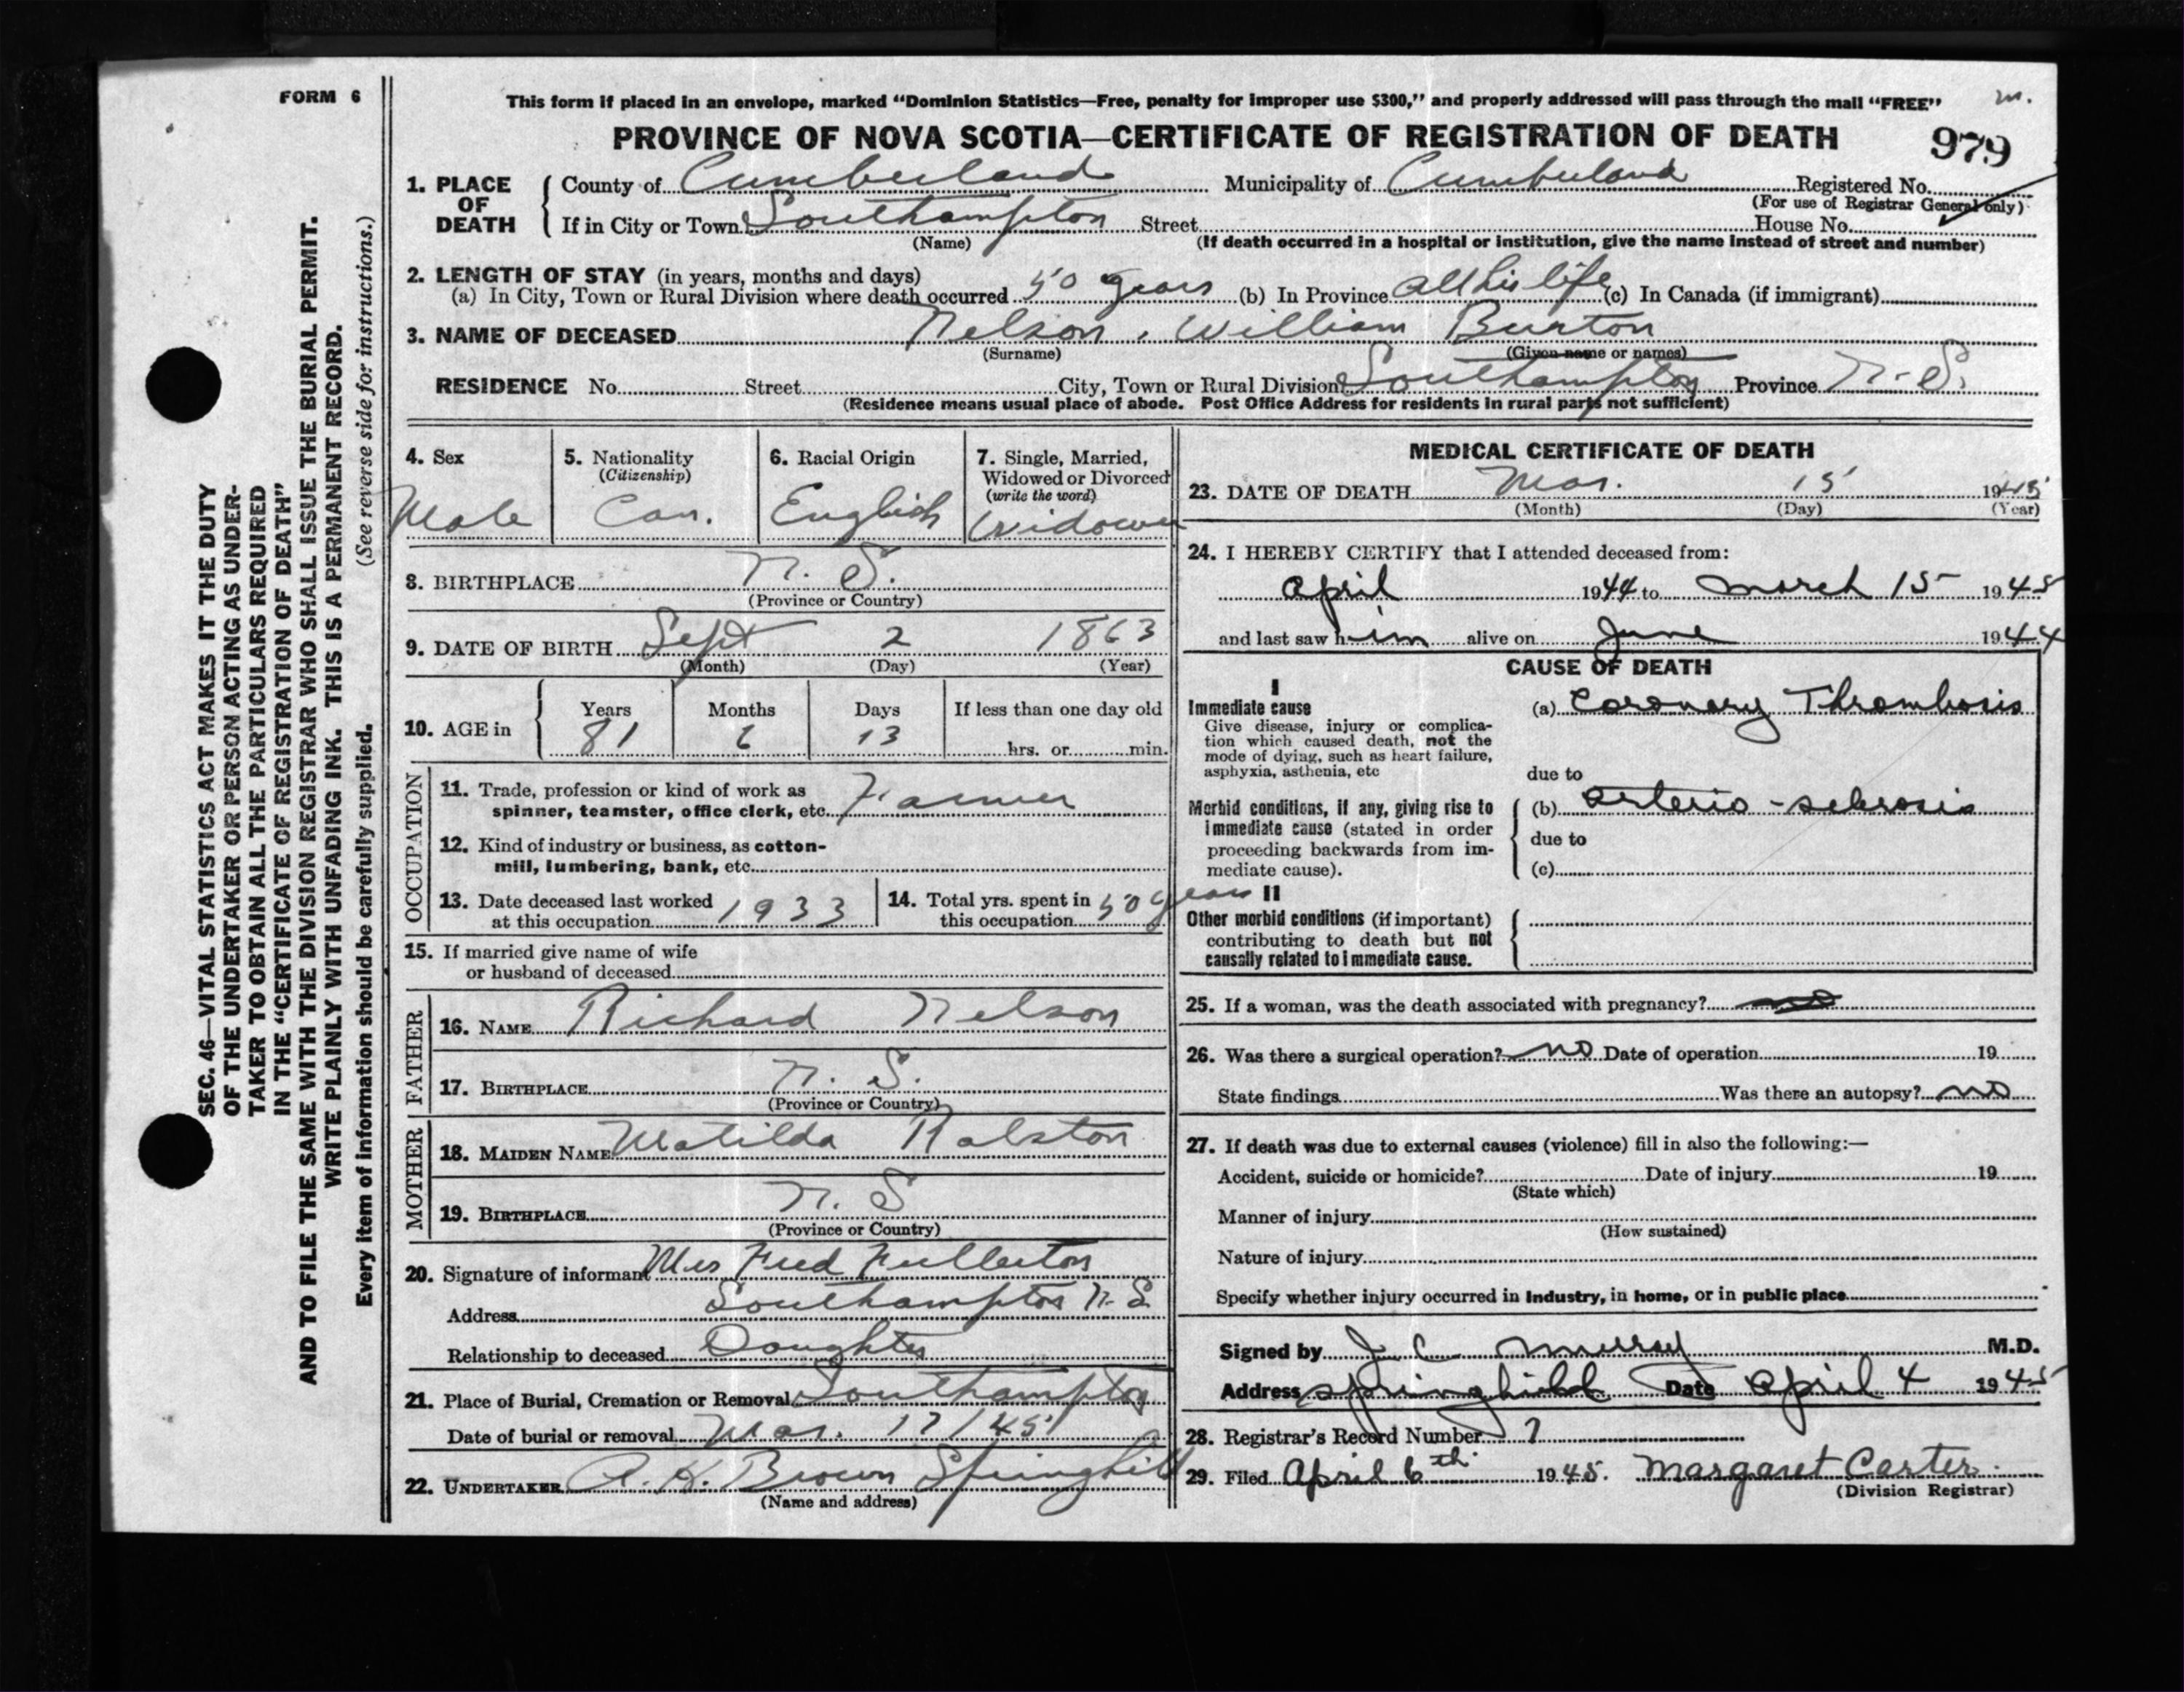 FORM 6
This form if placed in an envelope, marked "Dominion Statistics—Free, penalty for improper use $300," and properly addressed will pass through the mail "FREE"
m.
PROVINCE OF NOVA SCOTIA—CERTIFICATE OF REGISTRATION OF DEATH
979
1. PLACE OF DEATH
County of Cumberland Municipality of Cumberland Registered No.
(For use of Registrar General only)
If in City or Town Southampton Street House No.
(Name) (If death occurred in a hospital or institution, give the name instead of street and number)
2. LENGTH OF STAY (in years, months and days)
(a) In City, Town or Rural Division where death occurred 50 years (b) In Province all his life (c) In Canada (if immigrant)
3. NAME OF DECEASED Nelson, William Burton
(Surname) (Given name or names)
RESIDENCE No. Street City, Town or Rural Division Southampton Province N.S.
(Residence means usual place of abode. Post Office Address for residents in rural parts not sufficient)
4. Sex
Male
5. Nationality
(Citizenship)
Can.
6. Racial Origin
English
7. Single, Married,
Widowed or Divorced
(write the word)
Widower
8. BIRTHPLACE N. S.
(Province or Country)
9. DATE OF BIRTH Sept 2 1863
(Month) (Day) (Year)
10. AGE in
Years Months Days If less than one day old
81 6 13 hrs. or min.
OCCUPATION
11. Trade, profession or kind of work as
spinner, teamster, office clerk, etc. Farmer
12. Kind of industry or business, as cotton-
mill, lumbering, bank, etc.
13. Date deceased last worked
at this occupation 1933
14. Total yrs. spent in
this occupation 50 years
15. If married give name of wife
or husband of deceased
FATHER
16. NAME Richard Nelson
17. BIRTHPLACE N. S.
(Province or Country)
MOTHER
18. MAIDEN NAME Matilda Ralston
19. BIRTHPLACE N. S
(Province or Country)
20. Signature of informant Mrs Fred Fullerton
Address Southampton N. S.
Relationship to deceased Daughter
21. Place of Burial, Cremation or Removal Southampton
Date of burial or removal Mar. 17/45
22. UNDERTAKER A. H. Brown Springhill
(Name and address)
MEDICAL CERTIFICATE OF DEATH
23. DATE OF DEATH Mar. 15 1945
(Month) (Day) (Year)
24. I HEREBY CERTIFY that I attended deceased from:
April 1944 to March 15 1945
and last saw him alive on June 1944
CAUSE OF DEATH
I
Immediate cause
Give disease, injury or complica-
tion which caused death, not the
mode of dying, such as heart failure,
asphyxia, asthenia, etc
(a) Coronary Thrombosis
due to
Morbid conditions, if any, giving rise to
immediate cause (stated in order
proceeding backwards from im-
mediate cause).
(b) arterio-sclerosis
due to
(c)
II
Other morbid conditions (if important)
contributing to death but not
causally related to immediate cause.
25. If a woman, was the death associated with pregnancy? no
26. Was there a surgical operation? no Date of operation 19
State findings Was there an autopsy? no
27. If death was due to external causes (violence) fill in also the following:—
Accident, suicide or homicide? Date of injury 19
(State which)
Manner of injury
(How sustained)
Nature of injury
Specify whether injury occurred in Industry, in home, or in public place
Signed by J C Murray M.D.
Address Springhill Date April 4 1945
28. Registrar's Record Number 7
29. Filed April 6th 1945. Margaret Carter.
(Division Registrar)
SEC. 46—VITAL STATISTICS ACT MAKES IT THE DUTY
OF THE UNDERTAKER OR PERSON ACTING AS UNDER-
TAKER TO OBTAIN ALL THE PARTICULARS REQUIRED
IN THE "CERTIFICATE OF REGISTRATION OF DEATH"
AND TO FILE THE SAME WITH THE DIVISION REGISTRAR WHO SHALL ISSUE THE BURIAL PERMIT.
WRITE PLAINLY WITH UNFADING INK. THIS IS A PERMANENT RECORD.
Every item of information should be carefully supplied. (See reverse side for instructions.)